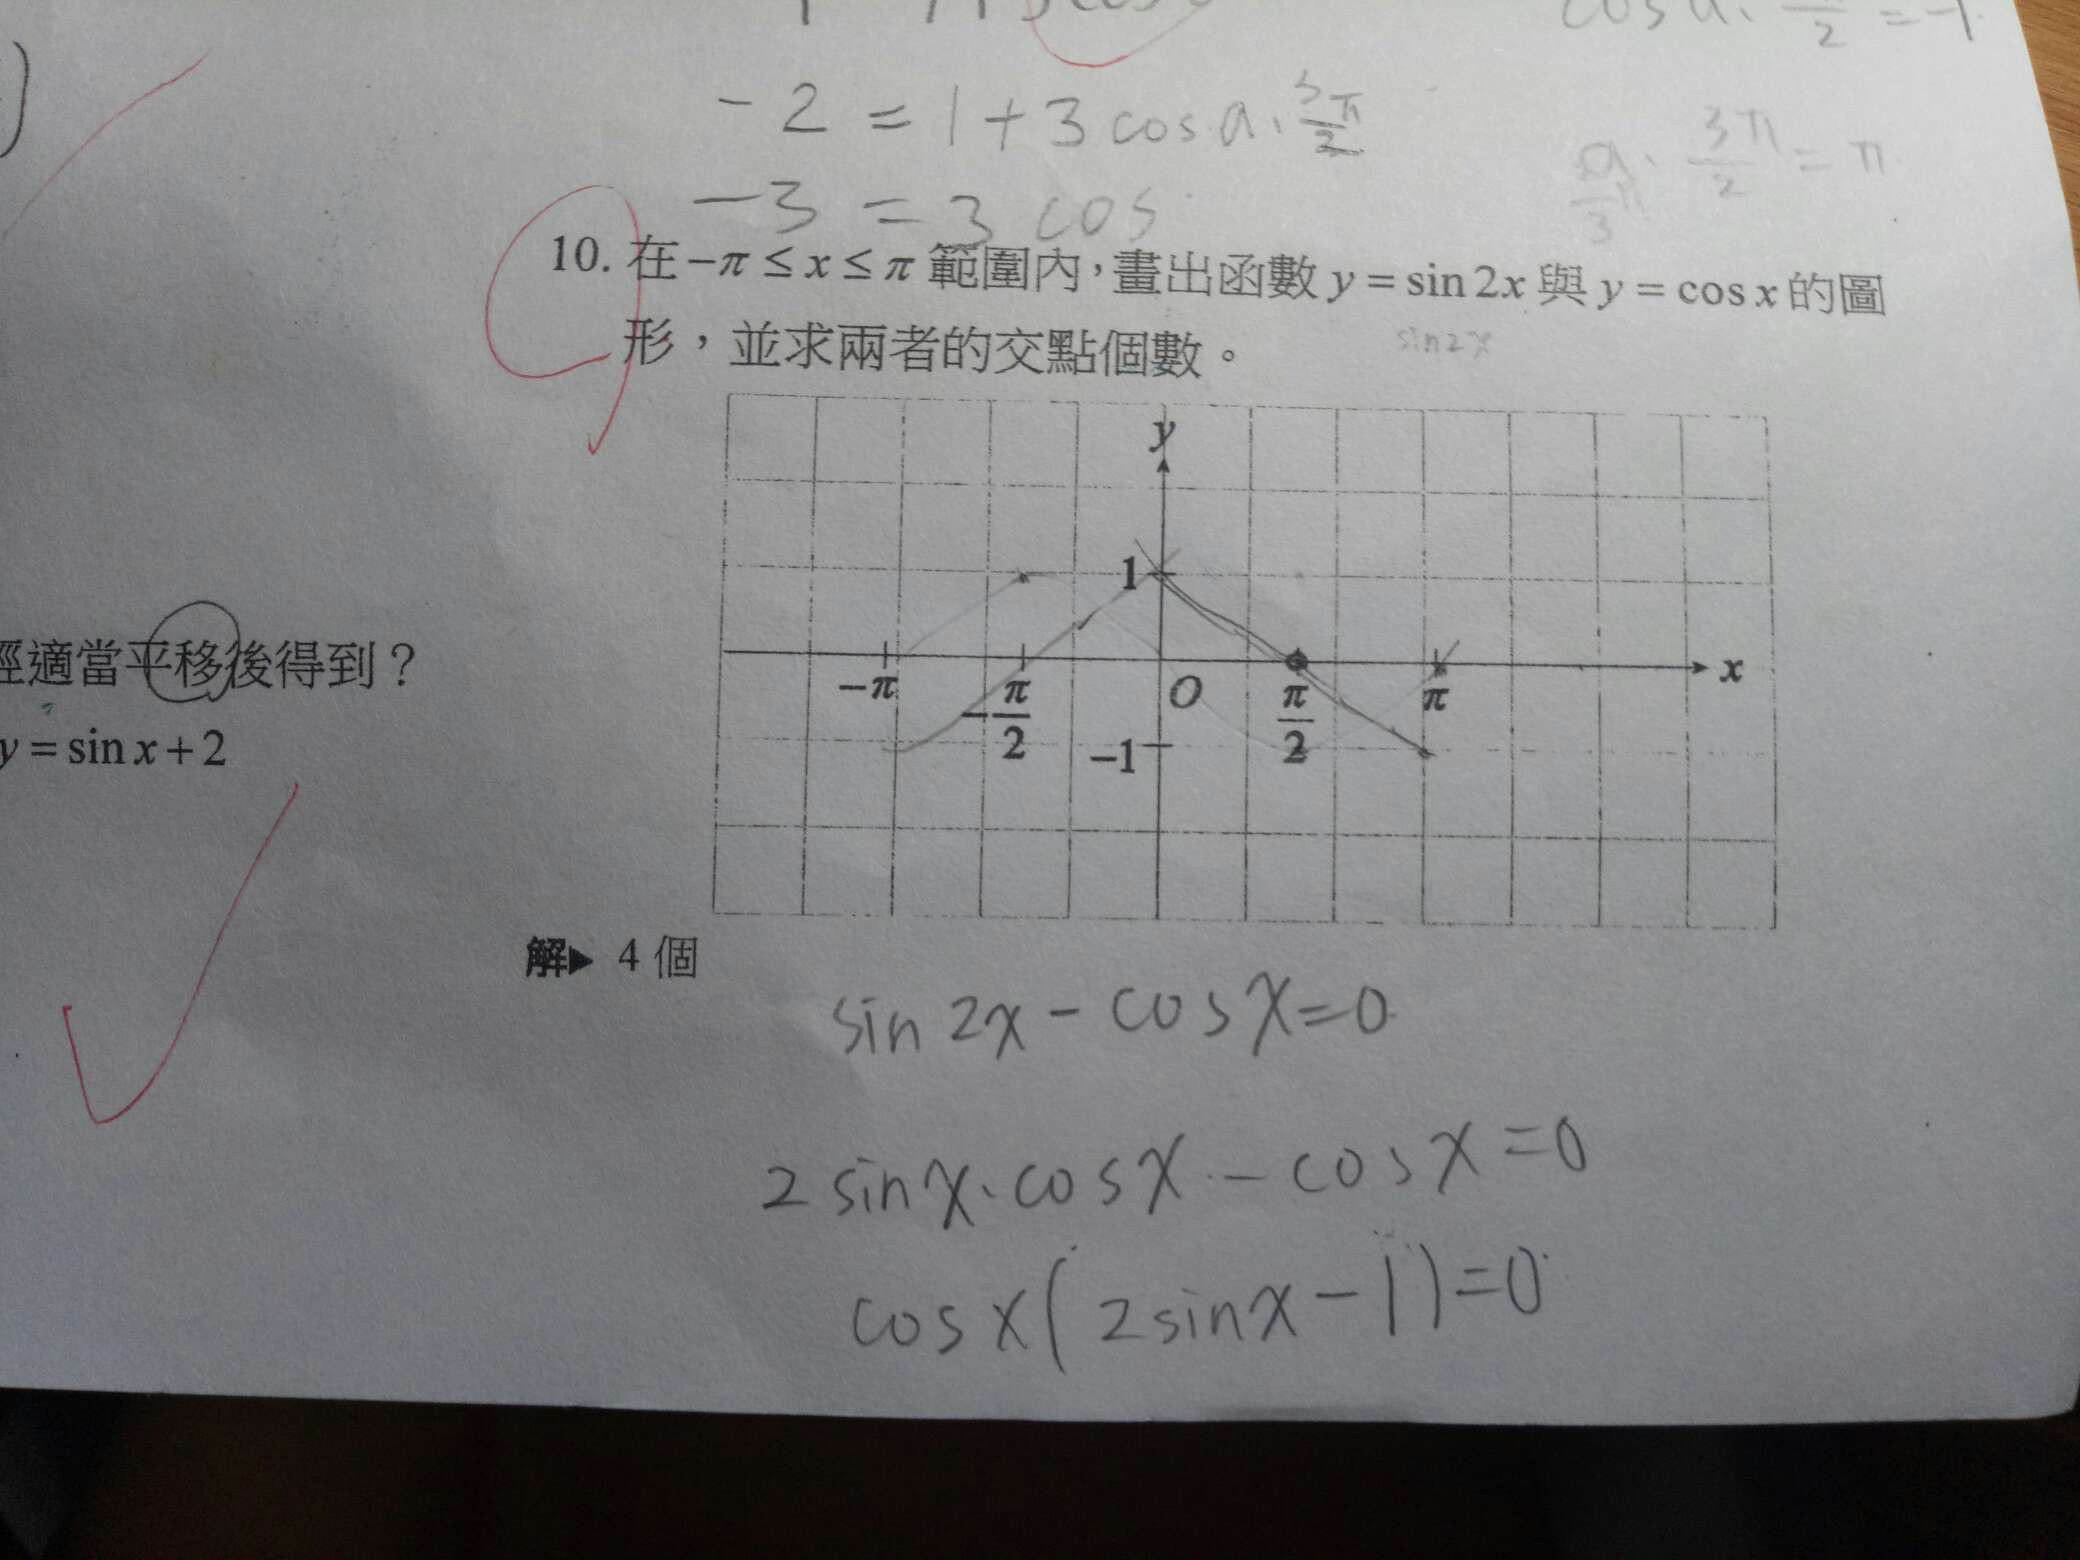 -2 = 1+3 cos a · 3π/2
a · 3π/2 = π
-3 = 3 cos
10. 在 -π ≤ x ≤ π 範圍內，畫出函數 y = sin 2x 與 y = cos x 的圖
形，並求兩者的交點個數。
sin2x
y
1
-π
-π/2
O
π/2
π
x
-1
經適當平移後得到？
y = sin x + 2
解▶ 4 個
sin 2x - cos x = 0
2 sin x · cos x - cos x = 0
cos x ( 2 sin x - 1 ) = 0